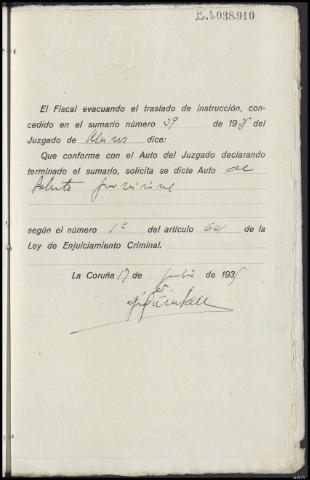 E.1.038.910
El Fiscal evacuando el traslado de instrucción, con-
cedido en el sumario número 39 de 193 del
Juzgado de Muros dice:
Que conforme con el Auto del Juzgado declarando
terminado el sumario, solicita se dicte Auto de
según el número 1º del artículo 641 de la
Ley de Enjuiciamiento Criminal.
La Coruña 17 de Julio de 193